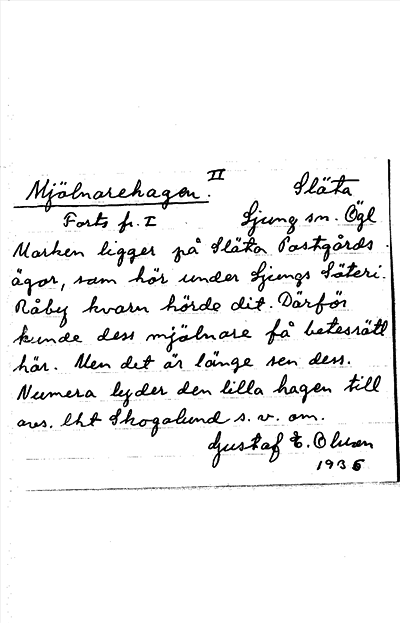 Mjölnarehagen. II Släta
Forts fr. I Ljung sn. Ögl
Marken ligger på Släta Postgårds
ägor, som hör under Ljungs Säteri.
Råby kvarn hörde dit. Därför
kunde dess mjölnare få betesrätt
här. Men det är länge sen dess.
Numera lyder den lilla hagen till
avs. lht Skogalund s. v. om.
Gustaf E. Olsson
1936